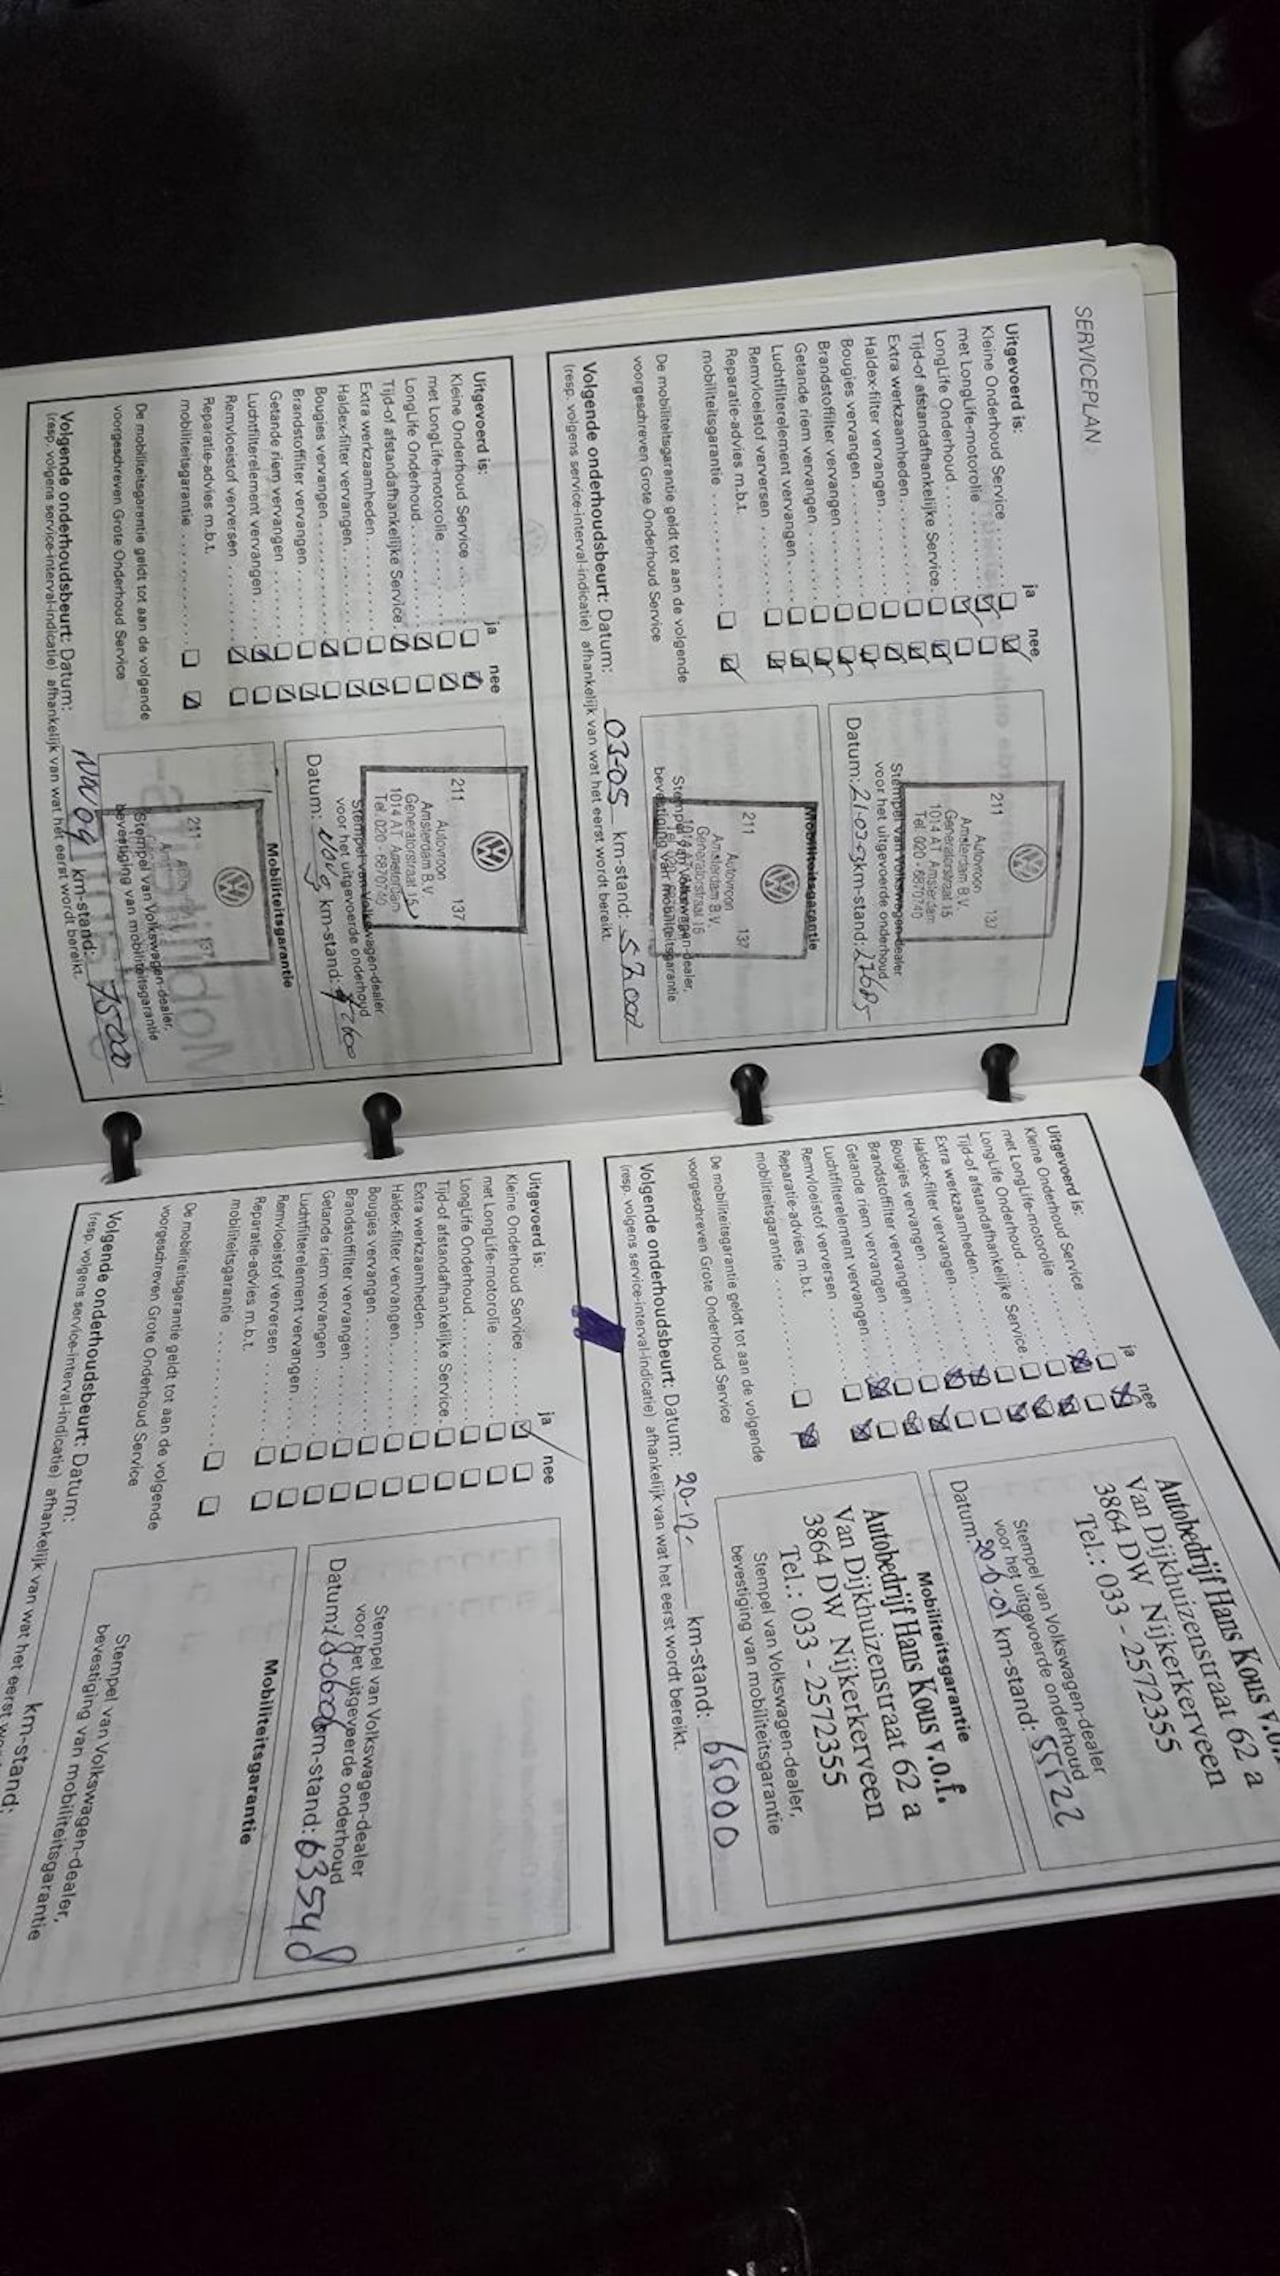 SERVICEPLAN
Uitgevoerd is:
ja nee
Kleine Onderhoud Service
met LongLife-motorolie
LongLife Onderhoud
Tijd-of afstandafhankelijke Service
Extra werkzaamheden
Haldex-filter vervangen
Bougies vervangen
Brandstoffilter vervangen
Getande riem vervangen
Luchtfilterelement vervangen
Remvloeistof verversen
Reparatie-advies m.b.t.
mobiliteitsgarantie
De mobiliteitsgarantie geldt tot aan de volgende
voorgeschreven Grote Onderhoud Service
211 137
Autovroon
Amsterdam B.V.
Generatorstraat 15
1014 AT Amsterdam
Tel. 020 - 6870740
Stempel van Volkswagen-dealer
voor het uitgevoerde onderhoud
Datum: 21-03-03 km-stand: 27685
Mobiliteitsgarantie
211 137
Autovroon
Amsterdam B.V.
Generatorstraat 15
Stempel van Volkswagen-dealer,
bevestiging van mobiliteitsgarantie
Volgende onderhoudsbeurt: Datum: 03-05 km-stand: 57000
(resp. volgens service-interval-indicatie) afhankelijk van wat het eerst wordt bereikt.
Uitgevoerd is:
ja nee
Kleine Onderhoud Service
met LongLife-motorolie
LongLife Onderhoud
Tijd-of afstandafhankelijke Service
Extra werkzaamheden
Haldex-filter vervangen
Bougies vervangen
Brandstoffilter vervangen
Getande riem vervangen
Luchtfilterelement vervangen
Remvloeistof verversen
Reparatie-advies m.b.t.
mobiliteitsgarantie
De mobiliteitsgarantie geldt tot aan de volgende
voorgeschreven Grote Onderhoud Service
211 137
Autovroon
Amsterdam B.V.
Generatorstraat 15
1014 AT Amsterdam
Tel. 020 - 6870740
Stempel van Volkswagen-dealer
voor het uitgevoerde onderhoud
Datum: km-stand:
Mobiliteitsgarantie
211 137
Stempel van Volkswagen-dealer,
bevestiging van mobiliteitsgarantie
Volgende onderhoudsbeurt: Datum: km-stand: 75000
(resp. volgens service-interval-indicatie) afhankelijk van wat het eerst wordt bereikt.
Uitgevoerd is:
ja nee
Kleine Onderhoud Service
met LongLife-motorolie
LongLife Onderhoud
Tijd-of afstandafhankelijke Service
Extra werkzaamheden
Haldex-filter vervangen
Bougies vervangen
Brandstoffilter vervangen
Getande riem vervangen
Luchtfilterelement vervangen
Remvloeistof verversen
Reparatie-advies m.b.t.
mobiliteitsgarantie
De mobiliteitsgarantie geldt tot aan de volgende
voorgeschreven Grote Onderhoud Service
Autobedrijf Hans Kous
Van Dijkhuizenstraat 62 a
3864 DW Nijkerkerveen
Tel.: 033 - 2572355
Stempel van Volkswagen-dealer
voor het uitgevoerde onderhoud
Datum: km-stand: 55522
Mobiliteitsgarantie
Autobedrijf Hans Kous v.o.f.
Van Dijkhuizenstraat 62 a
3864 DW Nijkerkerveen
Tel.: 033 - 2572355
Stempel van Volkswagen-dealer,
bevestiging van mobiliteitsgarantie
Volgende onderhoudsbeurt: Datum: 20-12- km-stand: 65000
(resp. volgens service-interval-indicatie) afhankelijk van wat het eerst wordt bereikt.
Uitgevoerd is:
ja nee
Kleine Onderhoud Service
met LongLife-motorolie
LongLife Onderhoud
Tijd-of afstandafhankelijke Service
Extra werkzaamheden
Haldex-filter vervangen
Bougies vervangen
Brandstoffilter vervangen
Getande riem vervangen
Luchtfilterelement vervangen
Remvloeistof verversen
Reparatie-advies m.b.t.
mobiliteitsgarantie
De mobiliteitsgarantie geldt tot aan de volgende
voorgeschreven Grote Onderhoud Service
Stempel van Volkswagen-dealer
voor het uitgevoerde onderhoud
Datum: km-stand: 63548
Mobiliteitsgarantie
Stempel van Volkswagen-dealer,
bevestiging van mobiliteitsgarantie
Volgende onderhoudsbeurt: Datum: km-stand:
(resp. volgens service-interval-indicatie) afhankelijk van wat het eerst